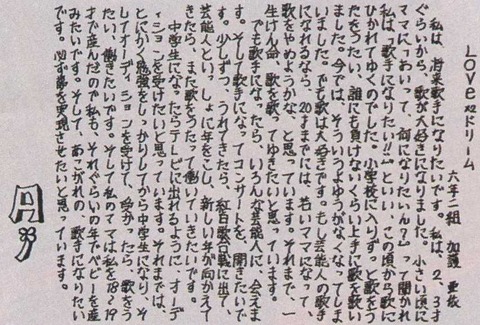 LOVE×2ドリーム
六年二組 加護 亜依
私は、将来歌手になりたいです。私は、2、3才
ぐらいから、歌が大好きになりました。小さい頃に
ママに「あいって、何になりたいん?」って聞かれ
私は「歌手になりたい!!」といい、この頃から歌に
ひかれてゆくのでした。小学校に入りずっと歌う
たをうたい、誰にも負けないくらい上手に歌を歌い
ました。今では、そういうようゆうがなくなってしま
いました。でも歌は大好きです。もし芸能人の歌手
になれるなら、20才までには、若いママになって、
歌をやめようかな、と思っています。それまで、一
生けん命、歌を歌ってゆきたいと思っています。
でも歌手になったら、いろんな芸能人に、会えま
す。そして歌手になってコンサートを、開きたいで
す。少しずつ、うれてきたら、紅白歌合戦に出て、
芸能人といっしょに年をこし、新しい年が向かえて
きたら、また歌をうたって働いていきたいです。
中学生になったらテレビに出れるように、オーデ
ィションを受けたいと思っています。それまでは、
とにかく勉強をしっかりしてから中学生になり、そ
してオーディションを受けて、受かったら、歌をう
たい、働きたいです。そして私のママは私を18〜19
才で産んだので私も、それぐらいの年でベビーを産
みたいです。そして、あこがれの、歌手になりたい
です。必ず夢を実現させたいと思っています。